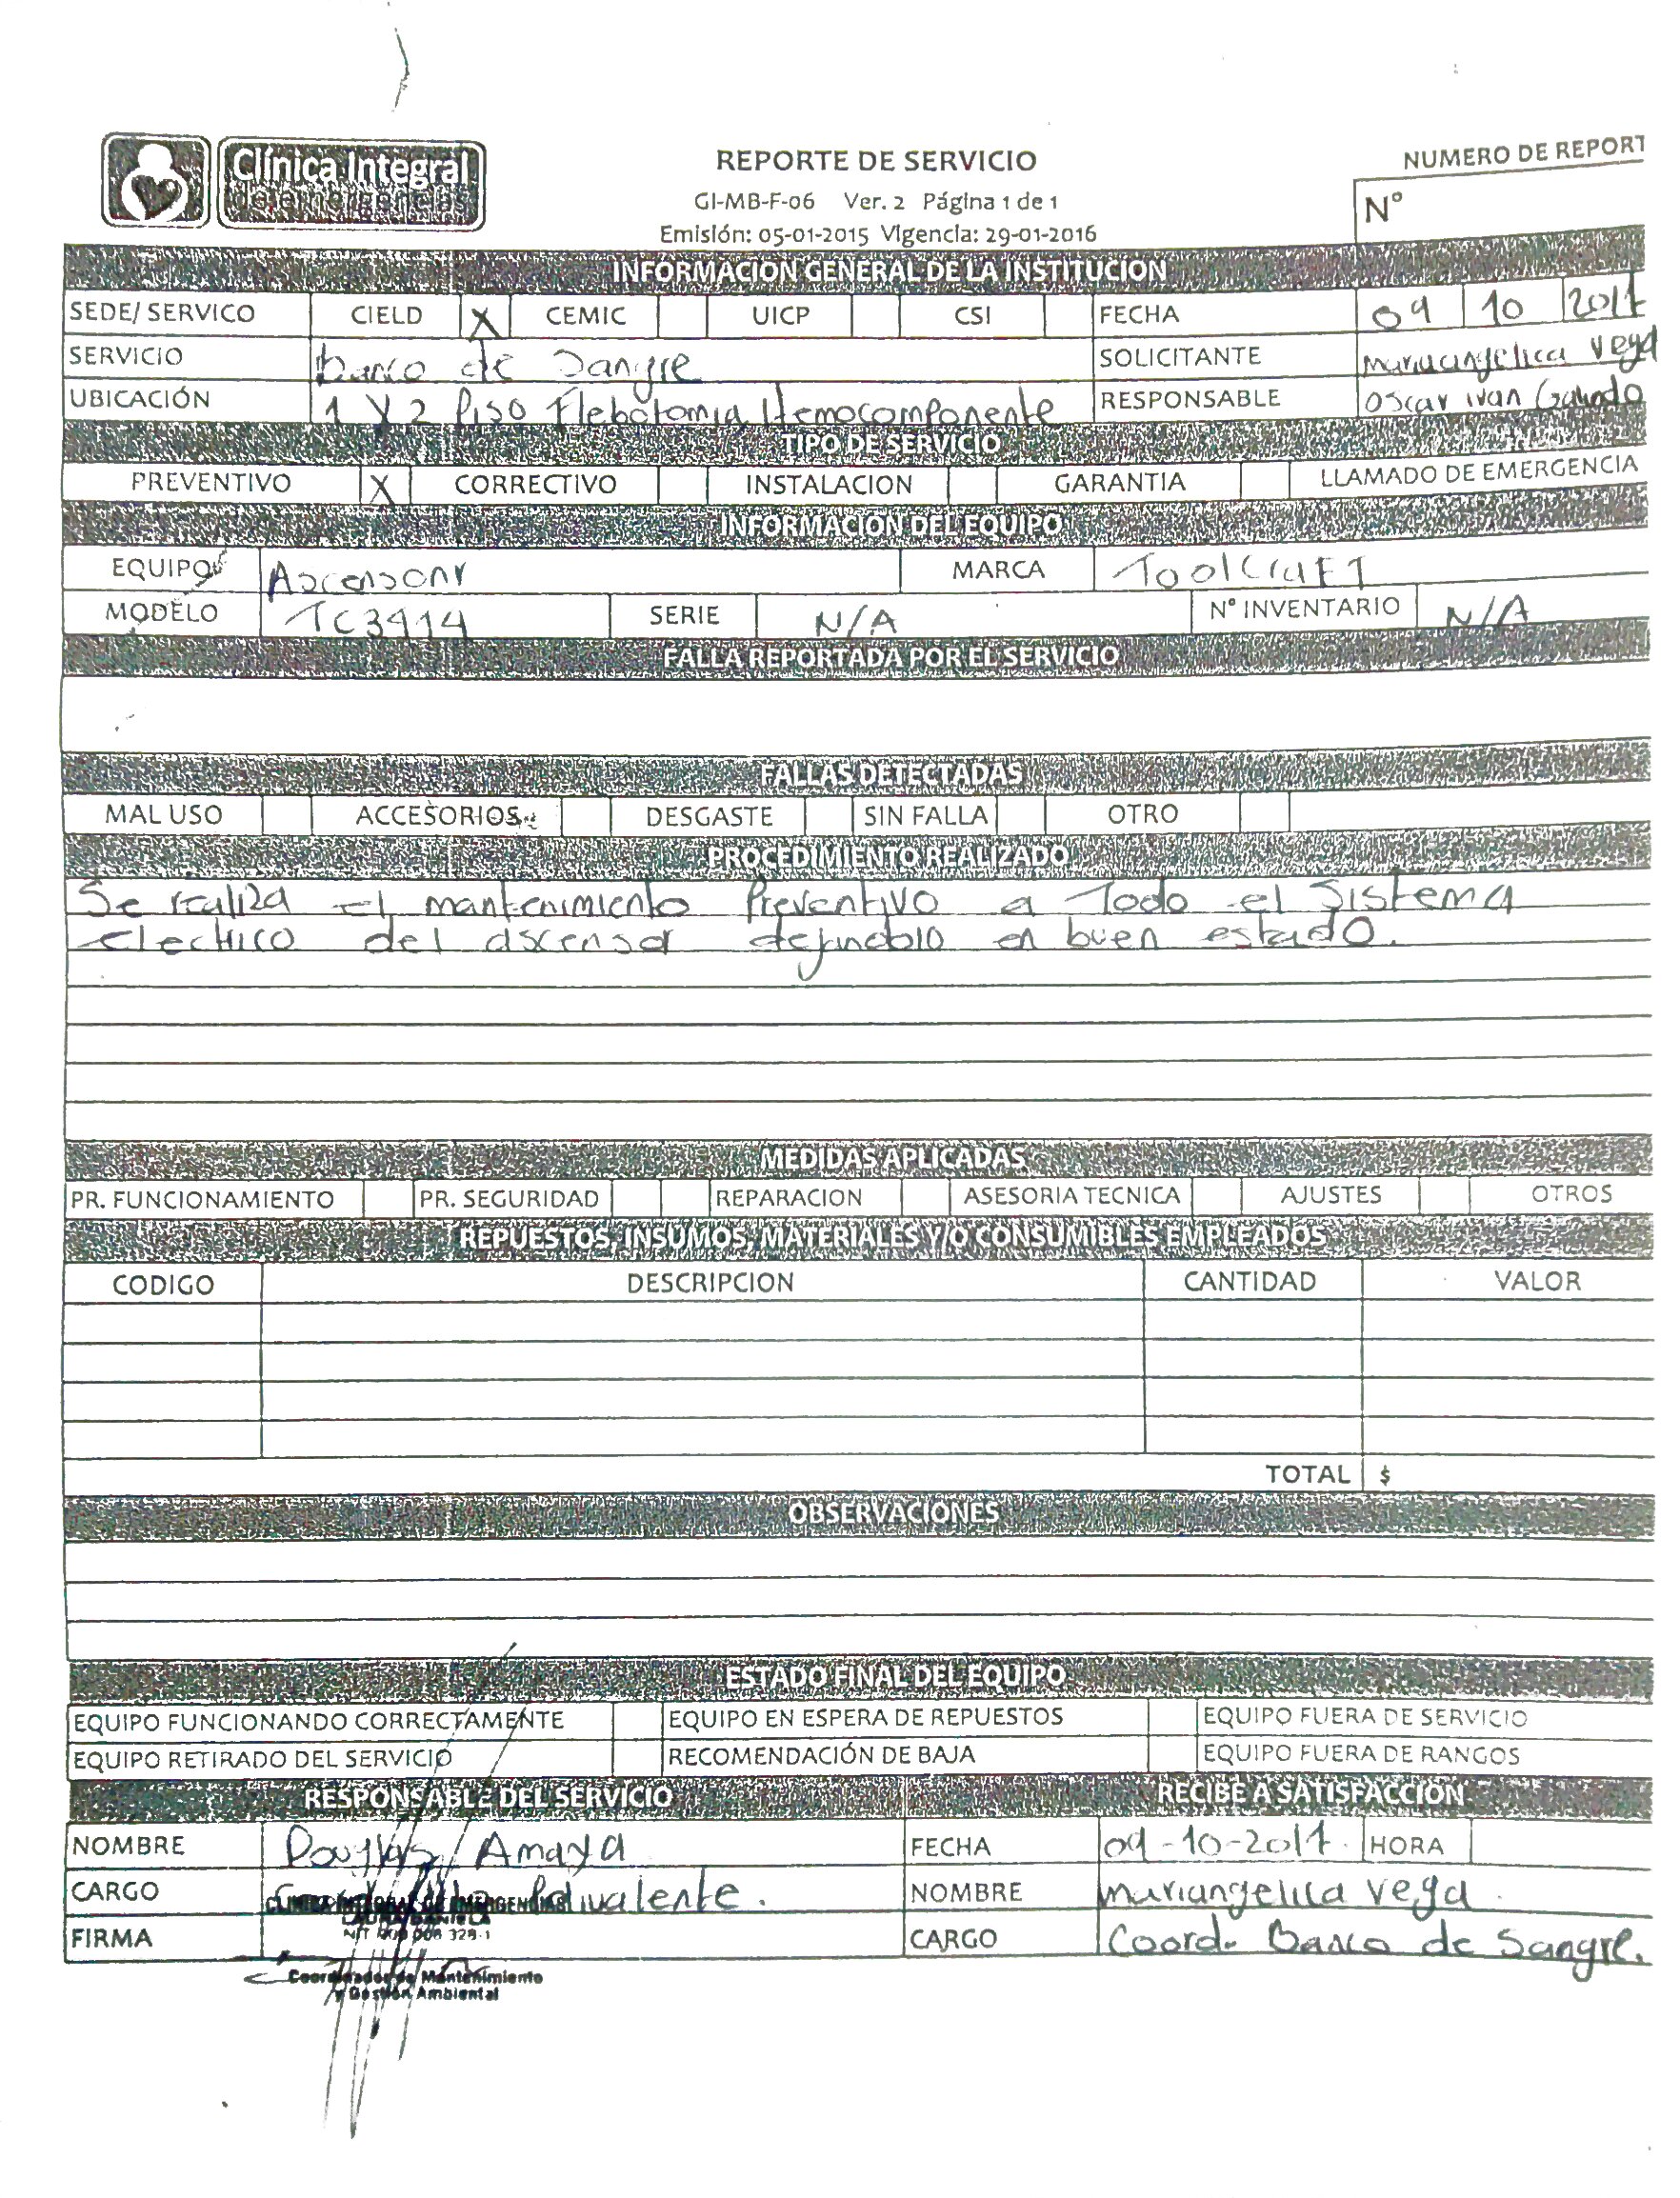 Clínica Integral
de emergencias
REPORTE DE SERVICIO
GI-MB-F-06 Ver. 2 Página 1 de 1
Emisión: 05-01-2015 Vigencia: 29-01-2016
NUMERO DE REPORT
N°
INFORMACION GENERAL DE LA INSTITUCION
SEDE/ SERVICO CIELD X CEMIC UICP CSI FECHA 09 10 2017
SERVICIO banco de Sangre SOLICITANTE mariangelica Vega
UBICACIÓN 1 Y 2 Piso Flebotomia Hemocomponente RESPONSABLE Oscar ivan Galindo
TIPO DE SERVICIO
PREVENTIVO X CORRECTIVO INSTALACION GARANTIA LLAMADO DE EMERGENCIA
INFORMACION DEL EQUIPO
EQUIPO Ascensor MARCA ToolCraft
MODELO TC3414 SERIE N/A N° INVENTARIO N/A
FALLA REPORTADA POR EL SERVICIO
FALLAS DETECTADAS
MAL USO ACCESORIOS DESGASTE SIN FALLA OTRO
PROCEDIMIENTO REALIZADO
Se realiza el mantenimiento Preventivo a Todo el Sistema
electrico del ascensor dejandolo en buen estado.
MEDIDAS APLICADAS
PR. FUNCIONAMIENTO PR. SEGURIDAD REPARACION ASESORIA TECNICA AJUSTES OTROS
REPUESTOS, INSUMOS, MATERIALES Y/O CONSUMIBLES EMPLEADOS
CODIGO DESCRIPCION CANTIDAD VALOR
TOTAL $
OBSERVACIONES
ESTADO FINAL DEL EQUIPO
EQUIPO FUNCIONANDO CORRECTAMENTE EQUIPO EN ESPERA DE REPUESTOS EQUIPO FUERA DE SERVICIO
EQUIPO RETIRADO DEL SERVICIO RECOMENDACIÓN DE BAJA EQUIPO FUERA DE RANGOS
RESPONSABLE DEL SERVICIO RECIBE A SATISFACCION
NOMBRE Douglas Amaya FECHA 09-10-2017. HORA
CARGO Polivalente. NOMBRE mariangelica Vega
CLINICA INTEGRAL DE EMERGENCIAS
LAURA DANIELA
FIRMA CARGO Coord. Banco de Sangre.
Coordinador de Mantenimiento
y Gestión Ambiental